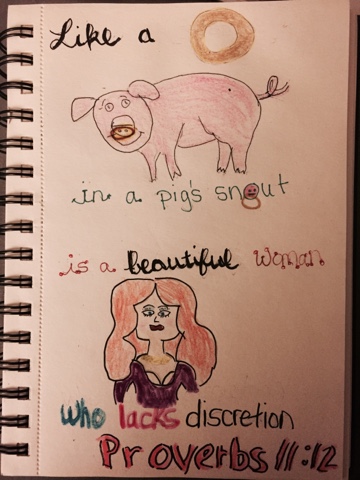 Like a
in a pig's snout
is a beautiful woman
who lacks discretion
Proverbs 11:12